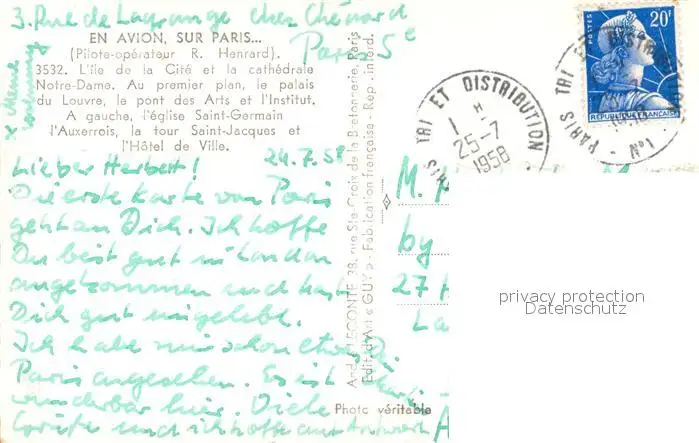 3. Rue de Lagrange chez Chénard
Paris 5e
EN AVION, SUR PARIS...
(Pilote-opérateur R. Henrard).
3532. L'île de la Cité et la cathédrale
Notre-Dame. Au premier plan, le palais
du Louvre, le pont des Arts et l'Institut.
A gauche, l'église Saint-Germain
l'Auxerrois, la tour Saint-Jacques et
l'Hôtel de Ville.
24.7.58
Lieber Herbert!
Die erste Karte von Paris
geht an Dich. Ich hoffe
Du bist gut in London
angekommen und hast
Dich gut eingelebt.
Ich habe mir schon etwas
Paris angesehen. Es ist
wunderbar hier. Viele
Grüße und ich hoffe auf Antwort
LECONTE, 38, rue Ste-Croix de la Bretonnerie, Paris
Edit. d'Art "GUY" - Fabrication française - Rep. interd.
Photo véritable
PARIS TRI ET DISTRIBUTION
25-7
1958
POSTES
20F
REPUBLIQUE FRANÇAISE
PARIS TRI ET DISTRIBUTION
M.
by
27
privacy protection
Datenschutz